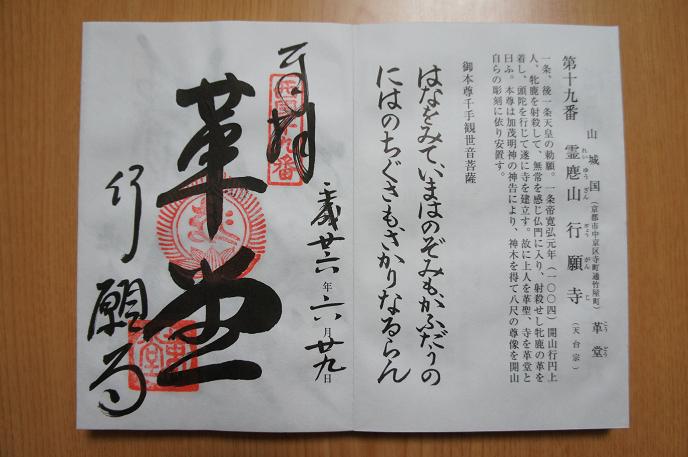 第十九番
山城国（京都市中京区寺町通竹屋町）革堂
霊麀山行願寺（天台宗）
れいゆうざん
ぎょうがんじ
こうどう
一条、後一条天皇の勅願。一条帝寛弘元年（一〇〇四）開山行円上
人、牝鹿を射殺して、無常を感じ仏門に入り、射殺せし牝鹿の革を
着し、頭陀を行じて遂に寺を建立す。故に上人を革聖、寺を革堂と
曰ふ。本尊は加茂明神の神告により、神木を得て八尺の尊像を開山
自らの彫刻に依り安置す。
御本尊千手観世音菩薩
はなをみていまはのぞみもかふだうの
にはのちぐさもさかりなるらん
奉拝
西國十九番
平成廿六年六月廿九日
革堂
行願寺